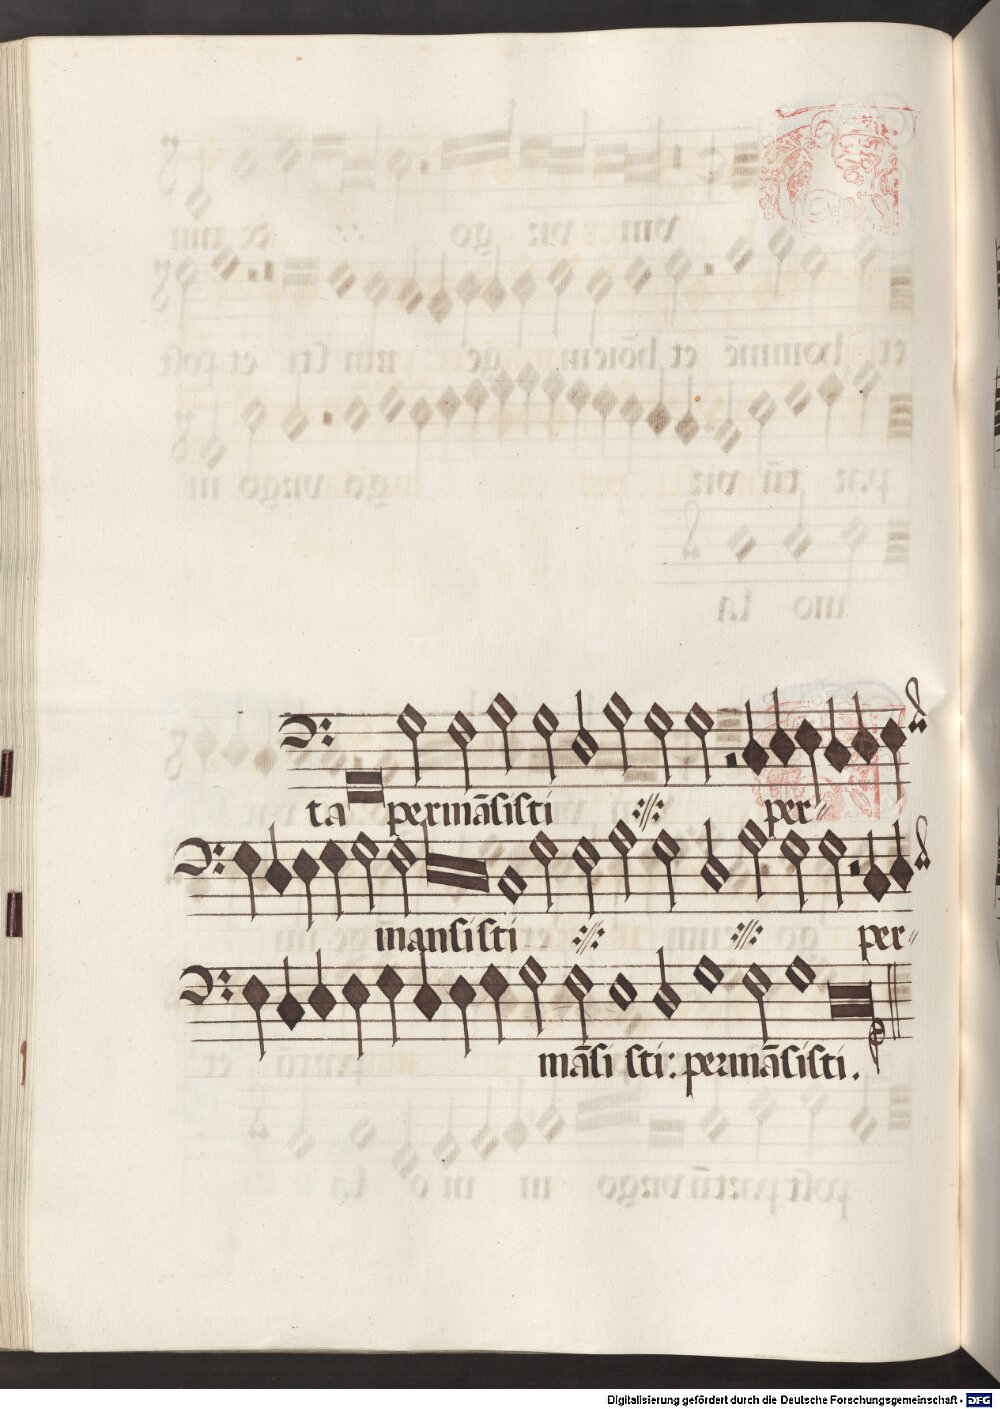 ta permāsisti per
mansisti per
māsi sti: permāsisti.
Digitalisierung gefördert durch die Deutsche Forschungsgemeinschaft - DFG